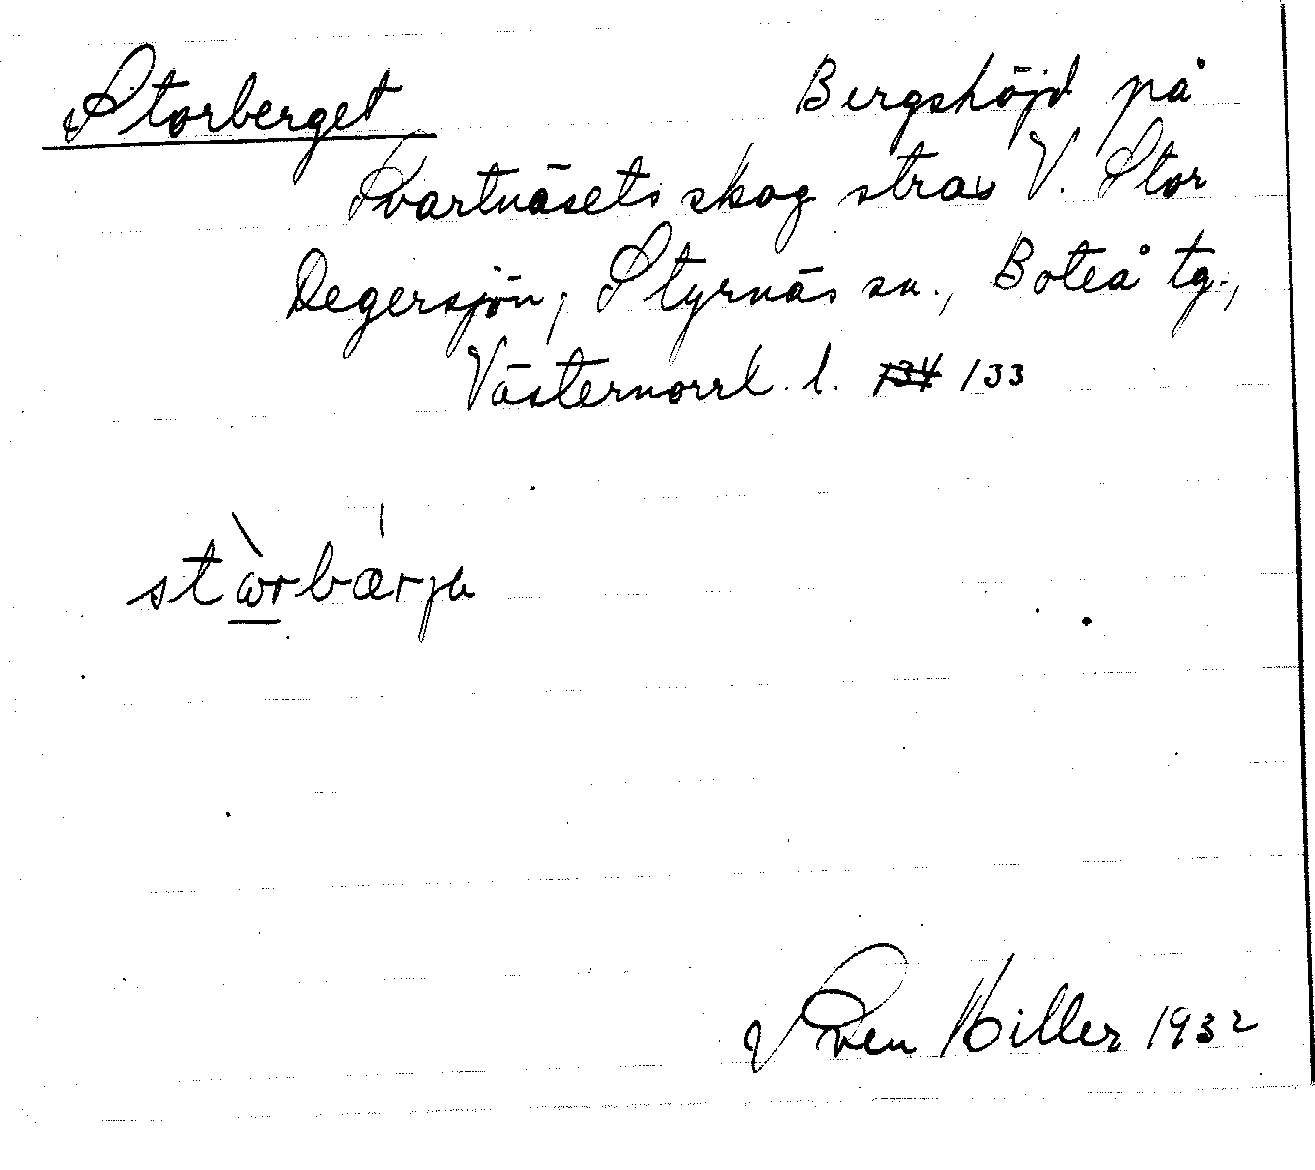 Storberget Bergshöjd på
Svartnäsets skog strax V. Stor
Degersjön, Styrnäs sn., Boteå tg.,
Västernorrl. l. 134 133
stòrbærja
Sven Hiller 1932